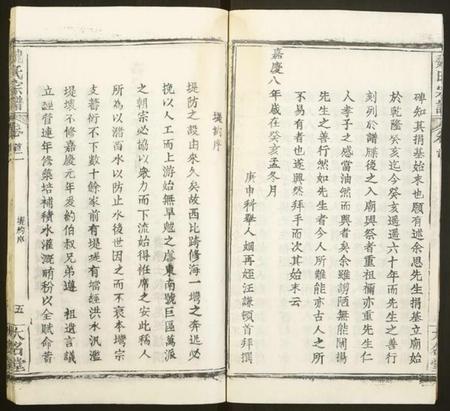 碑知其捐基始末也願有述余思先生捐基立廟始
於乾隆癸亥迄今癸亥遞遞六十年而先生之善行
刻列於譜牒後之入廟興祭者重祖禰亦重先生仁
人孝子之感當油然而興者矣余雖謭陋無能闡揚
先生之善行然如先生者今人所難能亦古人之所
不易有者也遂興然拜手而次其始末云
嘉慶八年歲在癸亥孟冬月
庚申科舉人姻再姪汪謙頓首拜撰
堤約序
堤防之設由來久矣故西北跨修海一壩之奔迅必
挽以人工而上游始無旱魃之虐東南號巨區萬派
之朝宗必協以眾力而下流始得袵席之安此稱人
所為以瀦畜水以防止水後世因之而不衰本壩宗
支蕃衍不下數十餘家前有堤堤有壩經洪水汎濫
堤壞不修嘉慶元年爰約伯叔兄弟遵 祖遺言議
立經督連年修築培補積水灌溉畊粉以全賦命昔
魏氏宗譜
卷首二
堤約序
五
大名堂